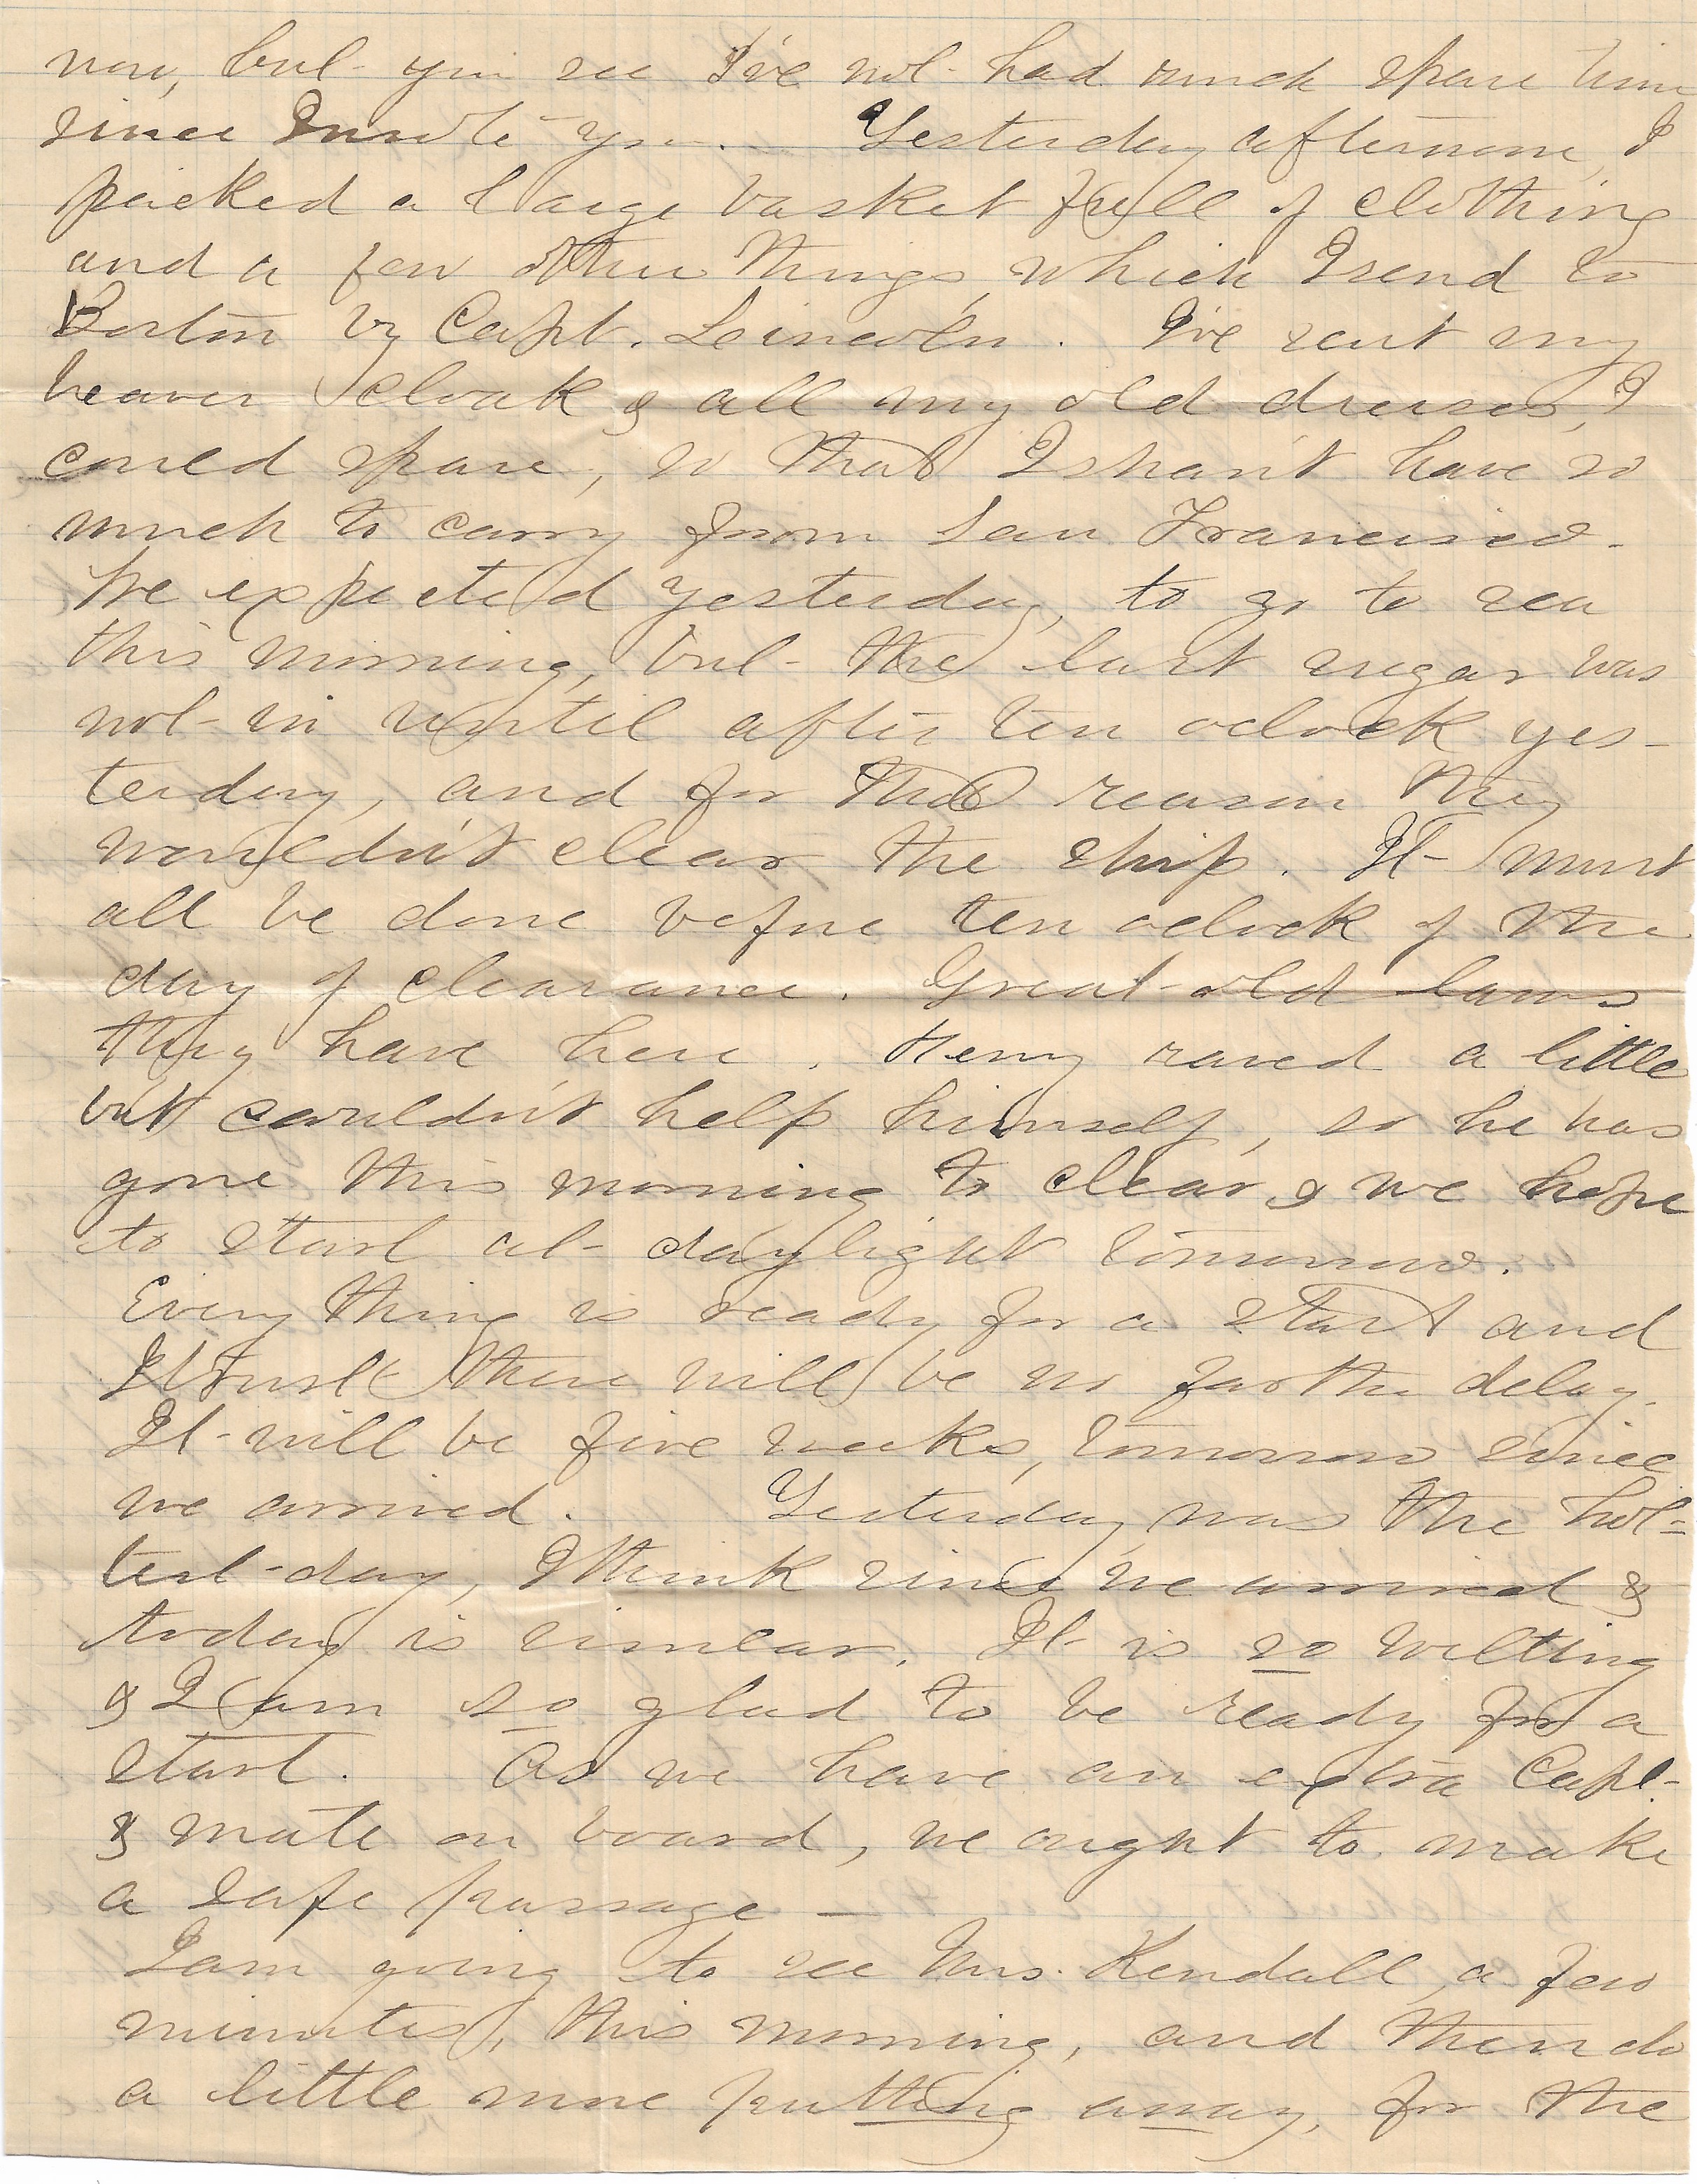 now, but you see I've not had much spare time
since I wrote you. Yesterday afternoon, I
packed a large basket full of clothing
and a few other things, which I send to
Boston by Capt. Leincoln. I've sent my
beaver cloak & all my old dresses, I
could spare, so that I shan't have so
much to carry from San Francisco.
We expected yesterday, to go to sea
this morning, but the last sugar was
not in until after ten oclock yes-
terday, and for that reason they
wouldn't clear the ship. It must
all be done before ten oclock of the
day of clearance. Great old laws
they have here. Henry raved a little
but couldn't help himself, so he has
gone this morning to clear & we hope
to start at daylight tomorrow.
Every thing is ready for a start and
I trust there will be no farther delay.
It will be five weeks, tomorrow since
we arrived. Yesterday was the hot=
test day, I think since we arrived &
today is similar. It is so wilting
& I am so glad to be ready for a
start. As we have an extra Capt.
& mate on board, we ought to make
a safe passage —
I am going to see Mrs. Kendall, a few
minutes, this morning, and then do
a little more putting away, for the